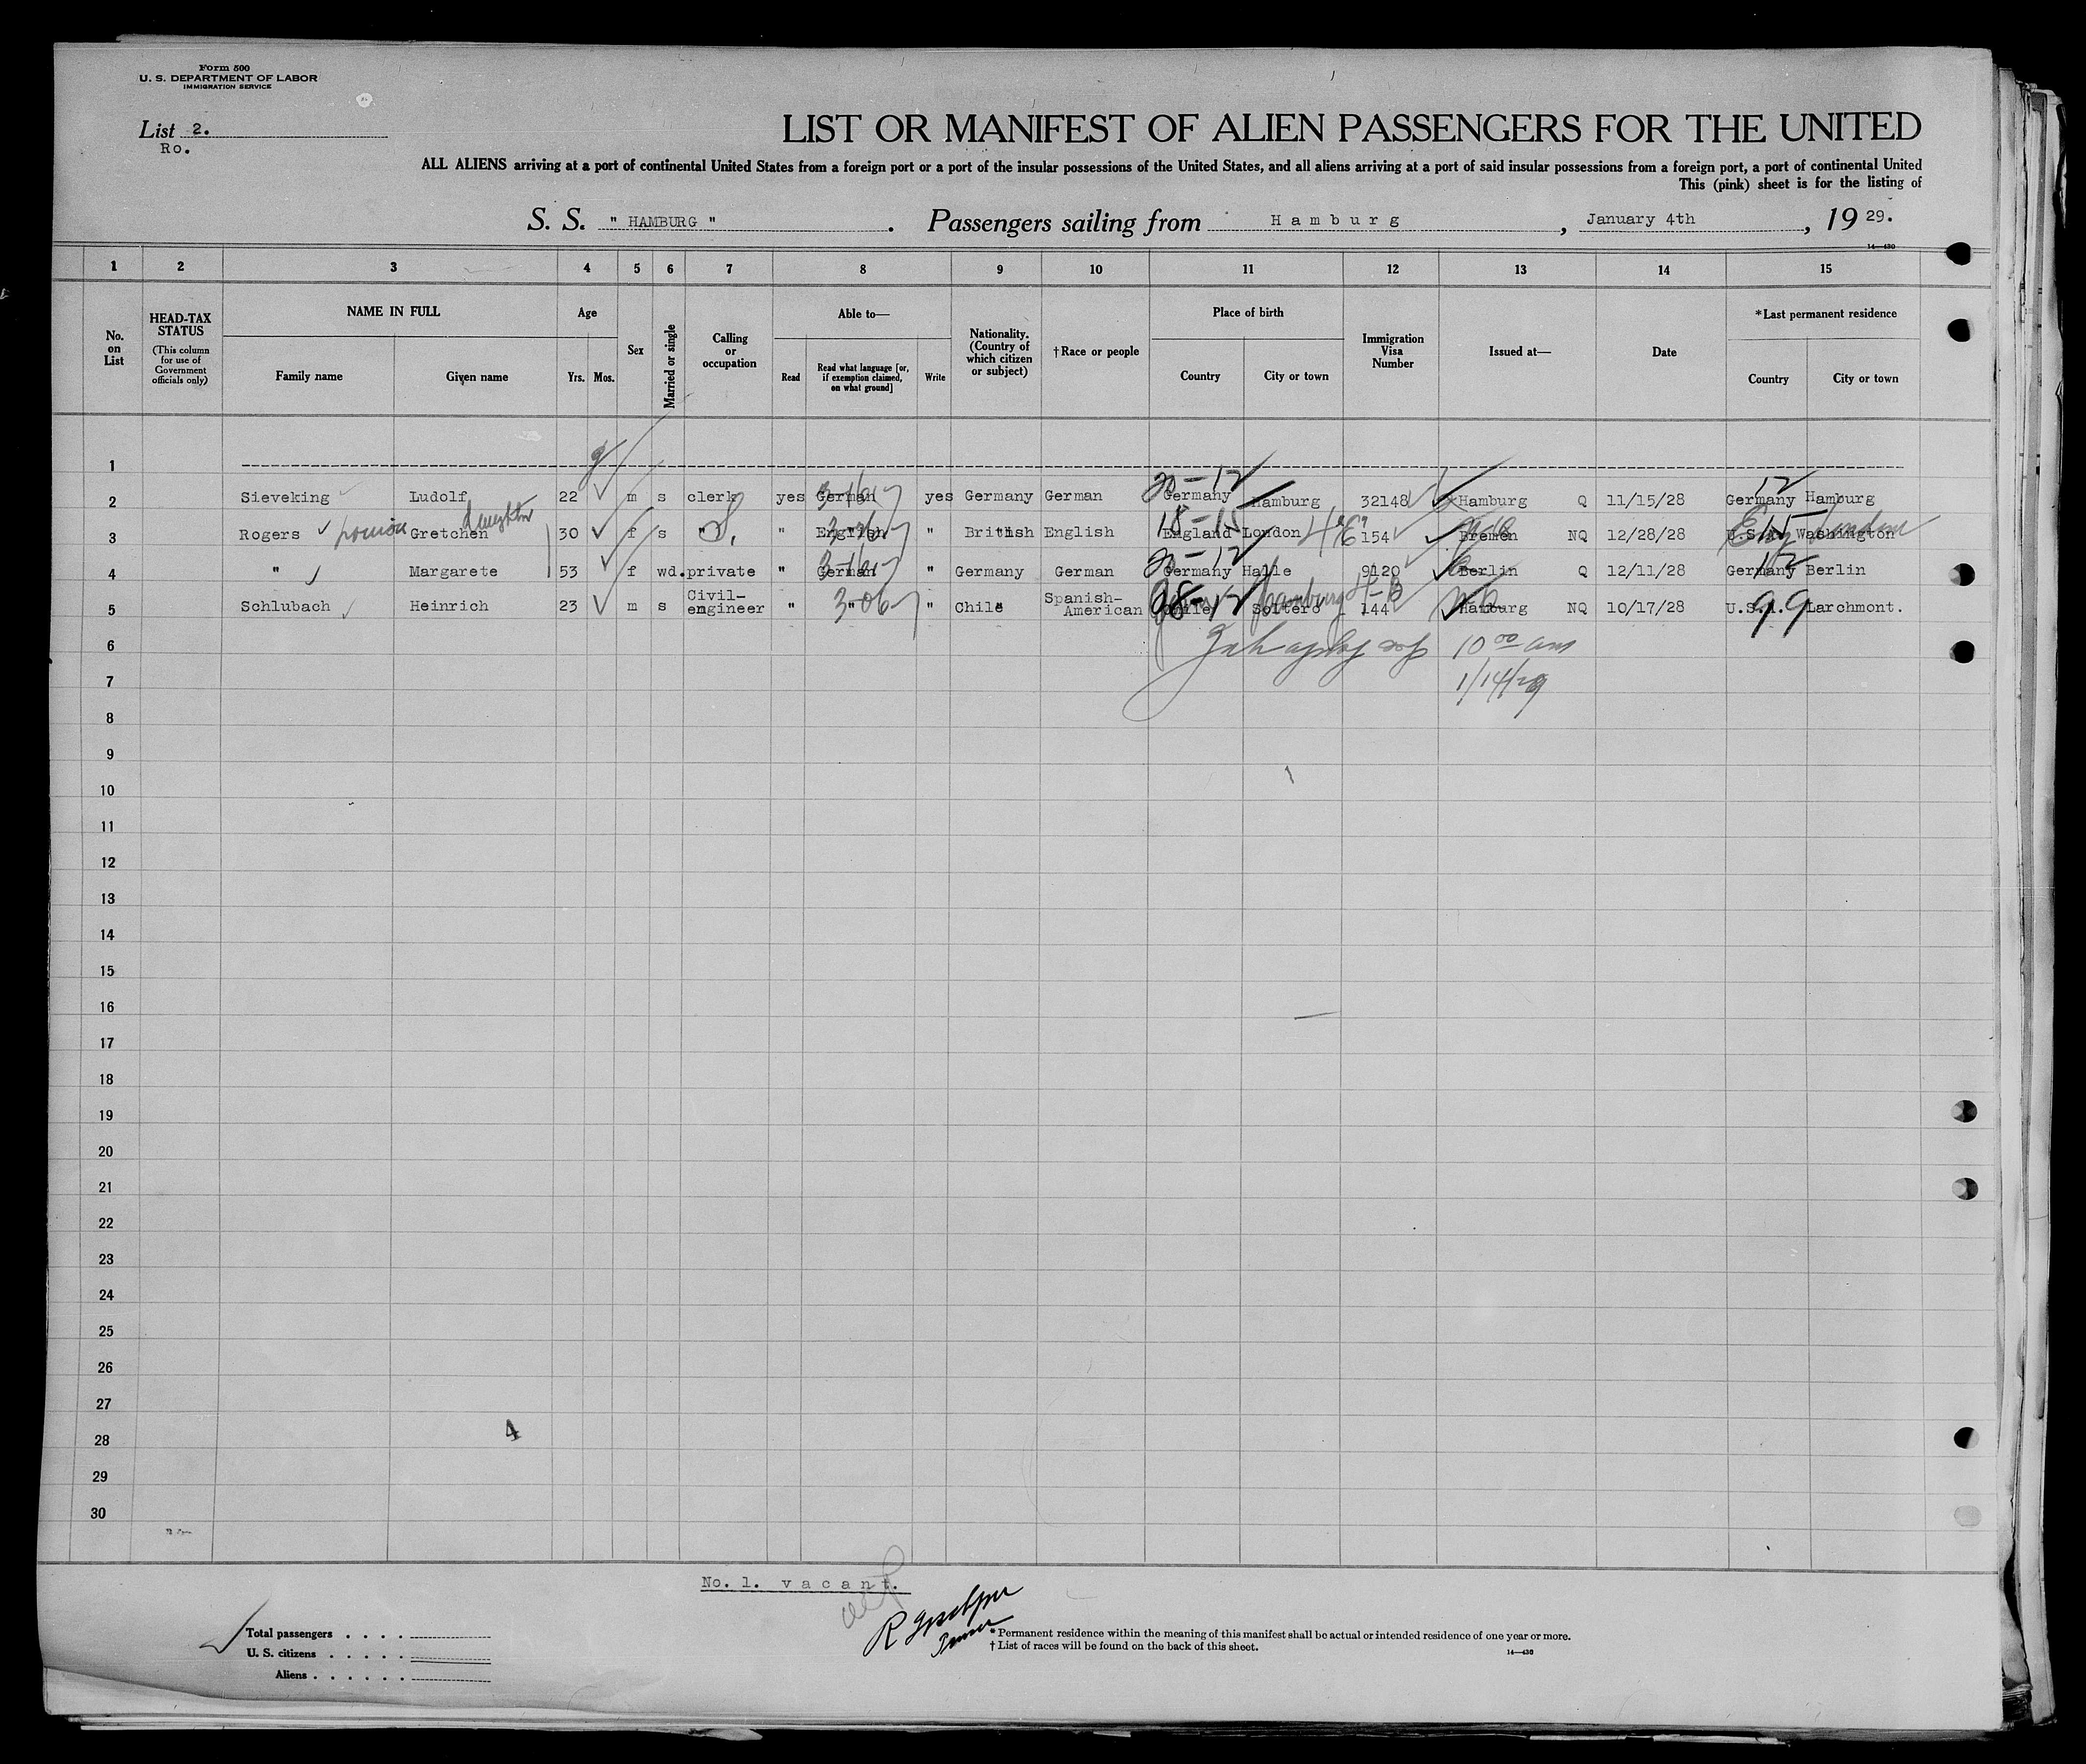 Form 500
U. S. DEPARTMENT OF LABOR
IMMIGRATION SERVICE
List 2.
Ro.
LIST OR MANIFEST OF ALIEN PASSENGERS FOR THE UNITED
ALL ALIENS arriving at a port of continental United States from a foreign port or a port of the insular possessions of the United States, and all aliens arriving at a port of said insular possessions from a foreign port, a port of continental United
This (pink) sheet is for the listing of
S. S. " HAMBURG ". Passengers sailing from Hamburg, January 4th, 1929.
14—430
1 2 3 4 5 6 7 8 9 10 11 12 13 14 15
No. on List
HEAD-TAX STATUS
(This column for use of Government officials only)
NAME IN FULL
Family name Given name
Age
Yrs. Mos.
Sex
Married or single
Calling or occupation
Able to—
Read
Read what language [or, if exemption claimed, on what ground]
Write
Nationality. (Country of which citizen or subject)
†Race or people
Place of birth
Country City or town
Immigration Visa Number
Issued at—
Date
*Last permanent residence
Country City or town
1
2 Sieveking Ludolf 22 m s clerk yes German yes Germany German Germany Hamburg 32148 Hamburg Q 11/15/28 Germany Hamburg
3 Rogers Gretchen daughter 30 f s " " English " British English England London 154 Bremen NQ 12/28/28 U.S.A. Washington London
4 " Margarete 53 f wd. private " German " Germany German Germany Halle 9120 Berlin Q 12/11/28 Germany Berlin
5 Schlubach Heinrich 23 m s Civil-engineer " " " Chile Spanish-American Chile Soltero Hamburg 144 Hamburg NQ 10/17/28 U.S.A. 99 Larchmont.
6 10 00 am
7 1/14/29
8
9
10
11
12
13
14
15
16
17
18
19
20
21
22
23
24
25
26
27
28
29
30
4
No. 1. vacant.
Total passengers . . . .
U. S. citizens . . . . .
Aliens . . . . . .
*Permanent residence within the meaning of this manifest shall be actual or intended residence of one year or more.
†List of races will be found on the back of this sheet.
14—430